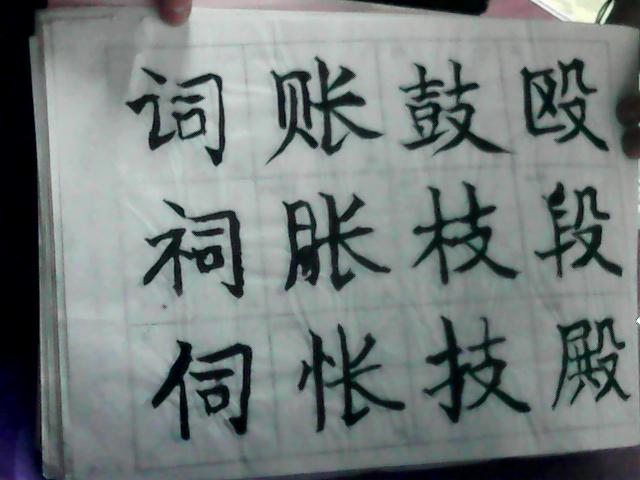 殴段殿
鼓枝技
账胀怅
词祠伺